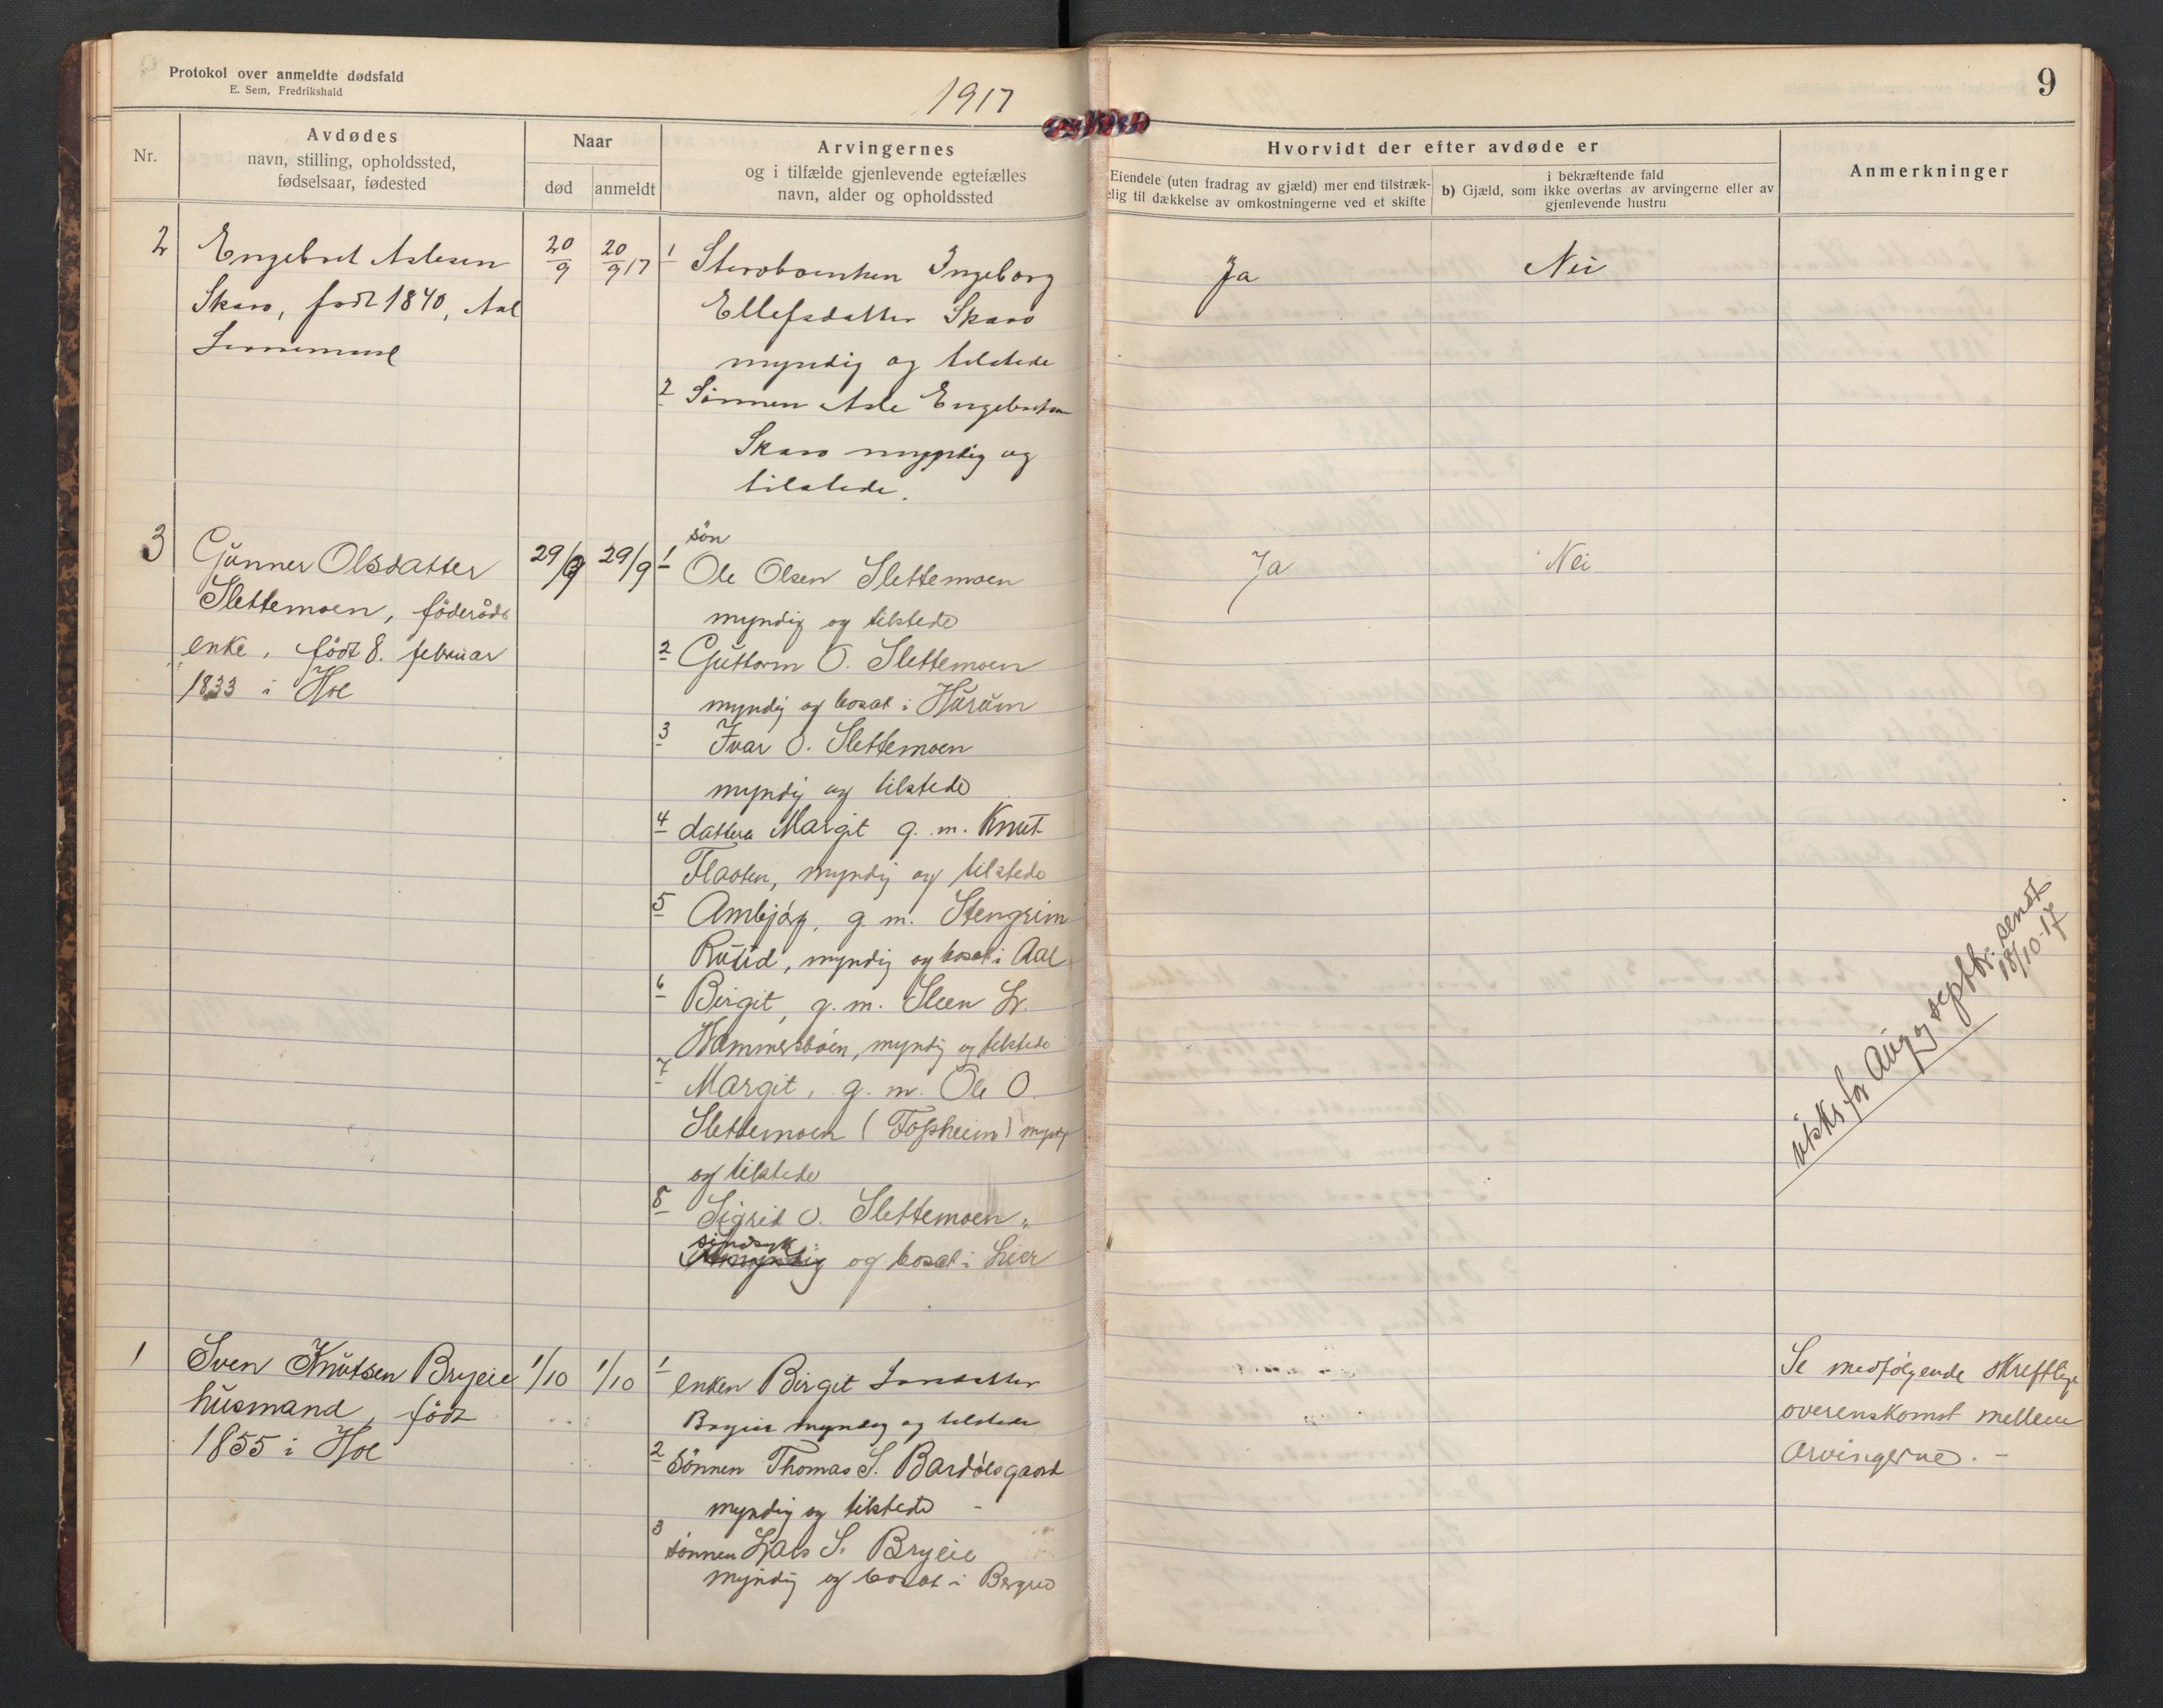 Protokol over anmeldte dødsfald
E. Sem, Fredrikshald
1917
9
Nr.
Avdødes
navn, stilling, opholdssted,
fødselsaar, fødested
Naar
død
anmeldt
Arvingernes
og i tilfælde gjenlevende egtefælles
navn, alder og opholdssted
Hvorvidt der efter avdøde er
Eiendele (uten fradrag av gjæld) mer end tilstræk-
elig til dækkelse av omkostningerne ved et skifte
i bekræftende fald
b) Gjæld, som ikke overtas av arvingerne eller av
gjenlevende hustru
Anmerkninger
2
Engebret Aslesen
Skaro, født 1840, Aal
20/9
20/9 17
1 Ingeborg
Ellefsdatter Skaro
myndig og tilstede
2 Sønnen Asle Engebretsen
Skaro myndig og
tilstede.
Ja
Nei
3
Gunner Olsdatter
Slettemoen, föderåds
enke, født 8. februar
1833 i Hol
29/9
29/9
søn
1 Ole Olsen Slettemoen
myndig og tilstede
2 Guttorm O. Slettemoen
myndig og bosat i Hurum
3 Ivar O. Slettemoen
myndig og tilstede
4 dattera Margit g. m. Knut
Flaaten, myndig og tilstede
5 Ambjørg, g. m. Stengrim
Rutid, myndig og bosat i Aal
6 Birgit, g. m. Steen
Hammersbøen, myndig og tilstede
7 Margit, g. m. Ole O.
Slettemoen (Fossheim) myndig
og tilstede
8 Sigrid O. Slettemoen,
sindsyk
Umyndig og bosat i Lier
Ja
Nei
utskr for Aug og septbr: sendt
18/10-17
1
Sven Knutsen Bryeie
husmand, født
1855 i Hol
1/10
1/10
1 enken Birgit Larsdatter
Bryeie myndig og tilstede
2 Sönnen Thomas S. Bardølsgaard
myndig og tilstede -
3 sønnen Lars S. Bryeie
myndig og bosat i
Se medfølgende skreftlige
overenskomst mellem
Arvingerne. -